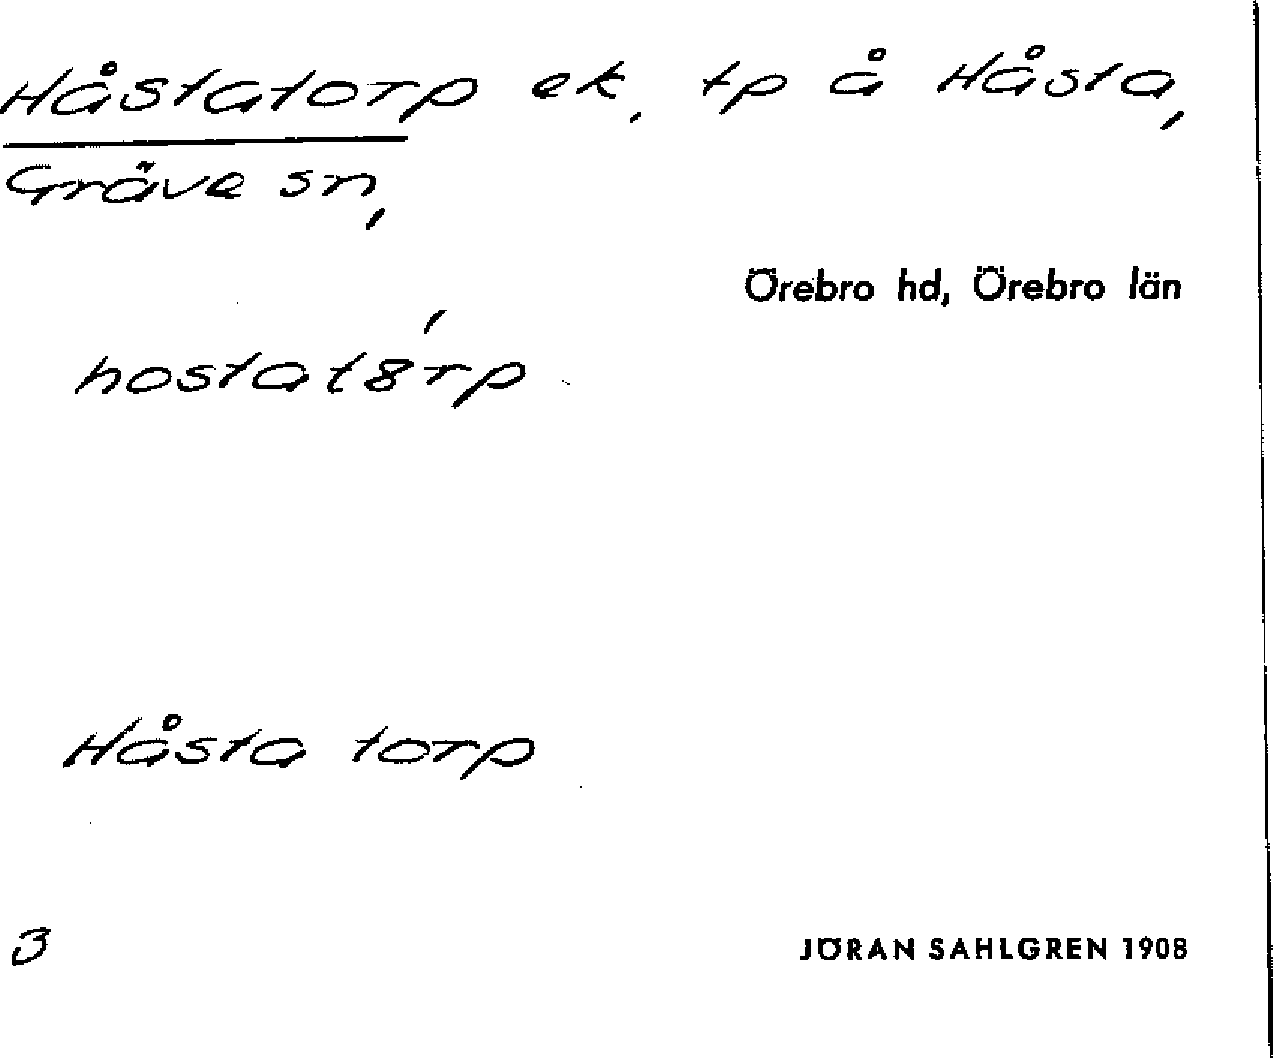 Håstatorp ek. tp å Håsta,
Gräve sn,
Örebro hd, Örebro län
hostat8́rp
Håsta torp
3
JÖRAN SAHLGREN 1908